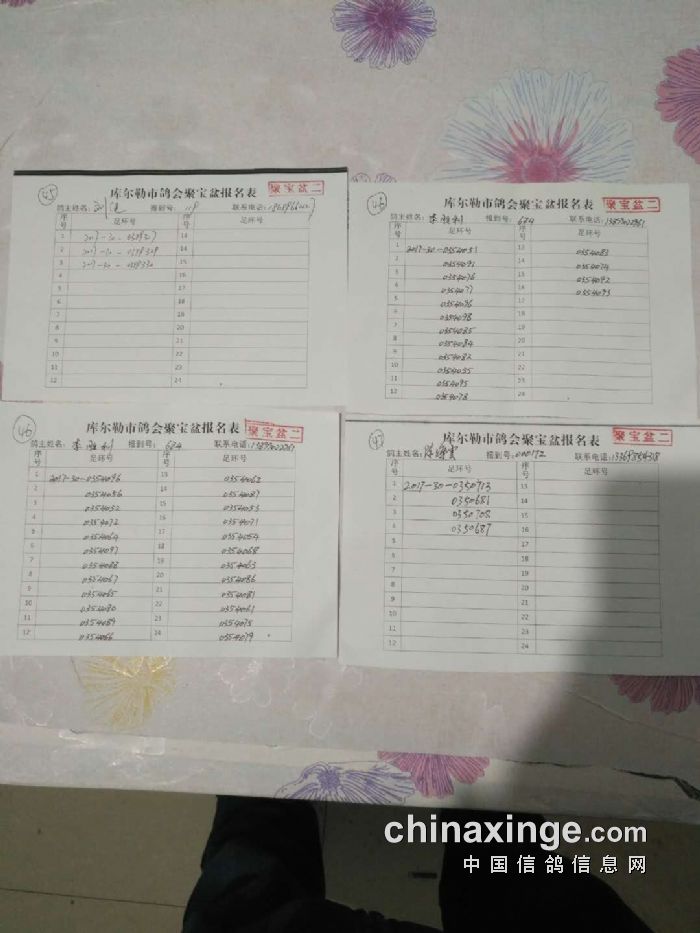 45
库尔勒市鸽会聚宝盆报名表
聚宝盆二
鸽主姓名: 报到号: 联系电话:
序号 足环号 序号 足环号
1 13
2 14
3 15
4 16
5 17
6 18
7 19
8 20
9 21
10 22
11 23
12 24
库尔勒市鸽会聚宝盆报名表
聚宝盆二
鸽主姓名: 李胜利 报到号: 684 联系电话:
序号 足环号 序号 足环号
1 2017-30-0354051 13 0354083
2 0354091 14 0354074
3 0354076 15 0354092
4 0354077 16 0354093
5 0354096 17
6 0354098 18
7 0354085 19
8 0354084 20
9 0354082 21
10 0354055 22
11 0354095 23
12 0354078 24
46
库尔勒市鸽会聚宝盆报名表
聚宝盆二
鸽主姓名: 李胜利 报到号: 684 联系电话:
序号 足环号 序号 足环号
1 2017-30-0354094 13 0354062
2 0354056 14 0354087
3 0354052 15 0354053
4 0354072 16 0354071
5 0354064 17 0354054
6 0354097 18 0354068
7 0354088 19 0354063
8 0354067 20 0354086
9 0354065 21 0354081
10 0354080 22 0354061
11 0354089 23 0354075
12 0354066 24 0354079
47
库尔勒市鸽会聚宝盆报名表
聚宝盆二
鸽主姓名: 报到号: 000172 联系电话:
序号 足环号 序号 足环号
1 2017-30-0350713 13
2 0350681 14
3 0350708 15
4 0350687 16
5 17
6 18
7 19
8 20
9 21
10 22
11 23
12 24
chinaxinge.com
中国信鸽信息网